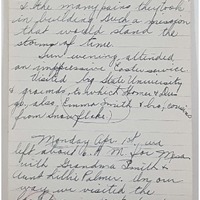 & the many pains they took
in building such a mission
that would stand the
storms of time.
Sun evening attended
an impressive Easter service
Visited Ariz State University
& grounds, to which Homer & Leon
go, also, Emma Smith & bro, cousins
from Snowflake)
Monday Apr 1st we
left about 6 A M for Mesa
with Grandma Smith &
aunt Lillie Palmer. On our
way we visited the